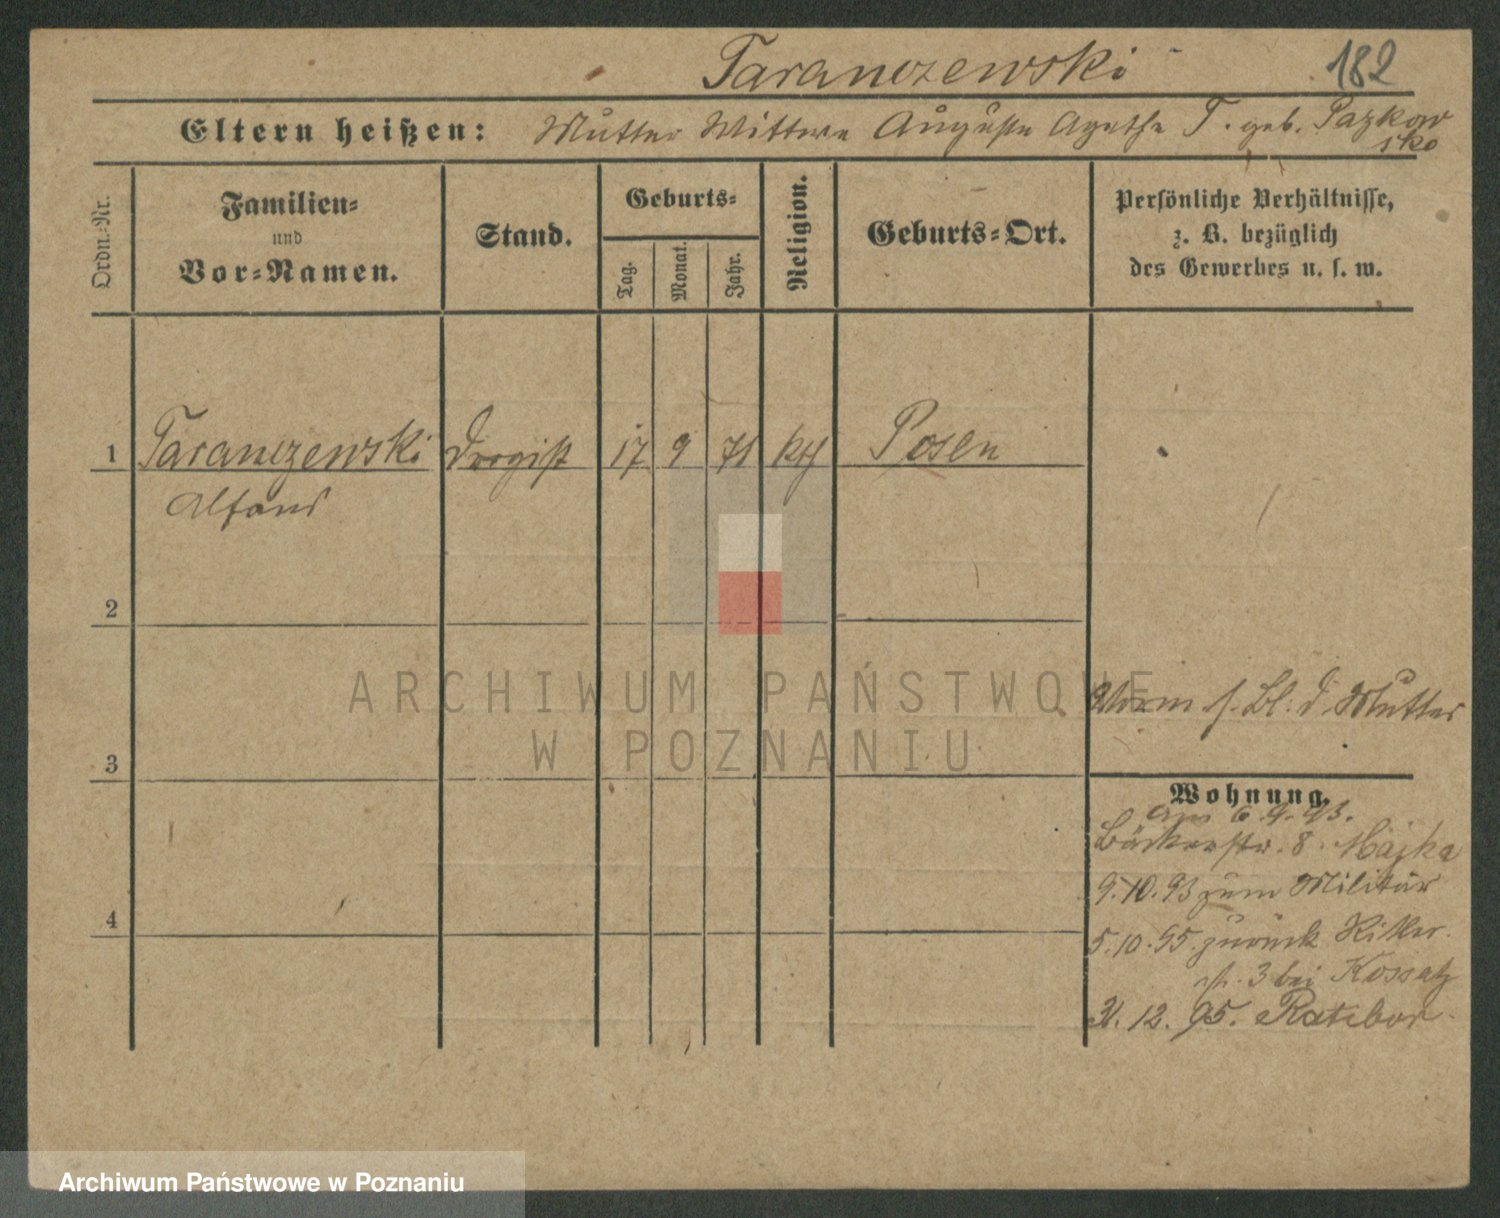 Taranczewski 182
Eltern heißen: Mutter Wittwe Auguste Agathe T. geb. Pazkow
ska
Ordn.-Nr.
Familien-
und
Vor-Namen.
Stand.
Geburts-
Tag.
Monat.
Jahr.
Religion.
Geburts-Ort.
Persönliche Verhältnisse,
z. B. bezüglich
des Gewerbes u. s. w.
1 Taranczewski Drogist 17 9 71 kth Posen
Alfons
2
s. Bl. d. Mutter
3
Wohnung.
am 6.9.93.
Bäckerstr. 8. Majka
9.10.93 zum Militär
4
5.10.95. zurück Ritter
str. 3 bei Kossatz
31.12.95. Ratibor
ARCHIWUM PAŃSTWOWE
W POZNANIU
Archiwum Państwowe w Poznaniu